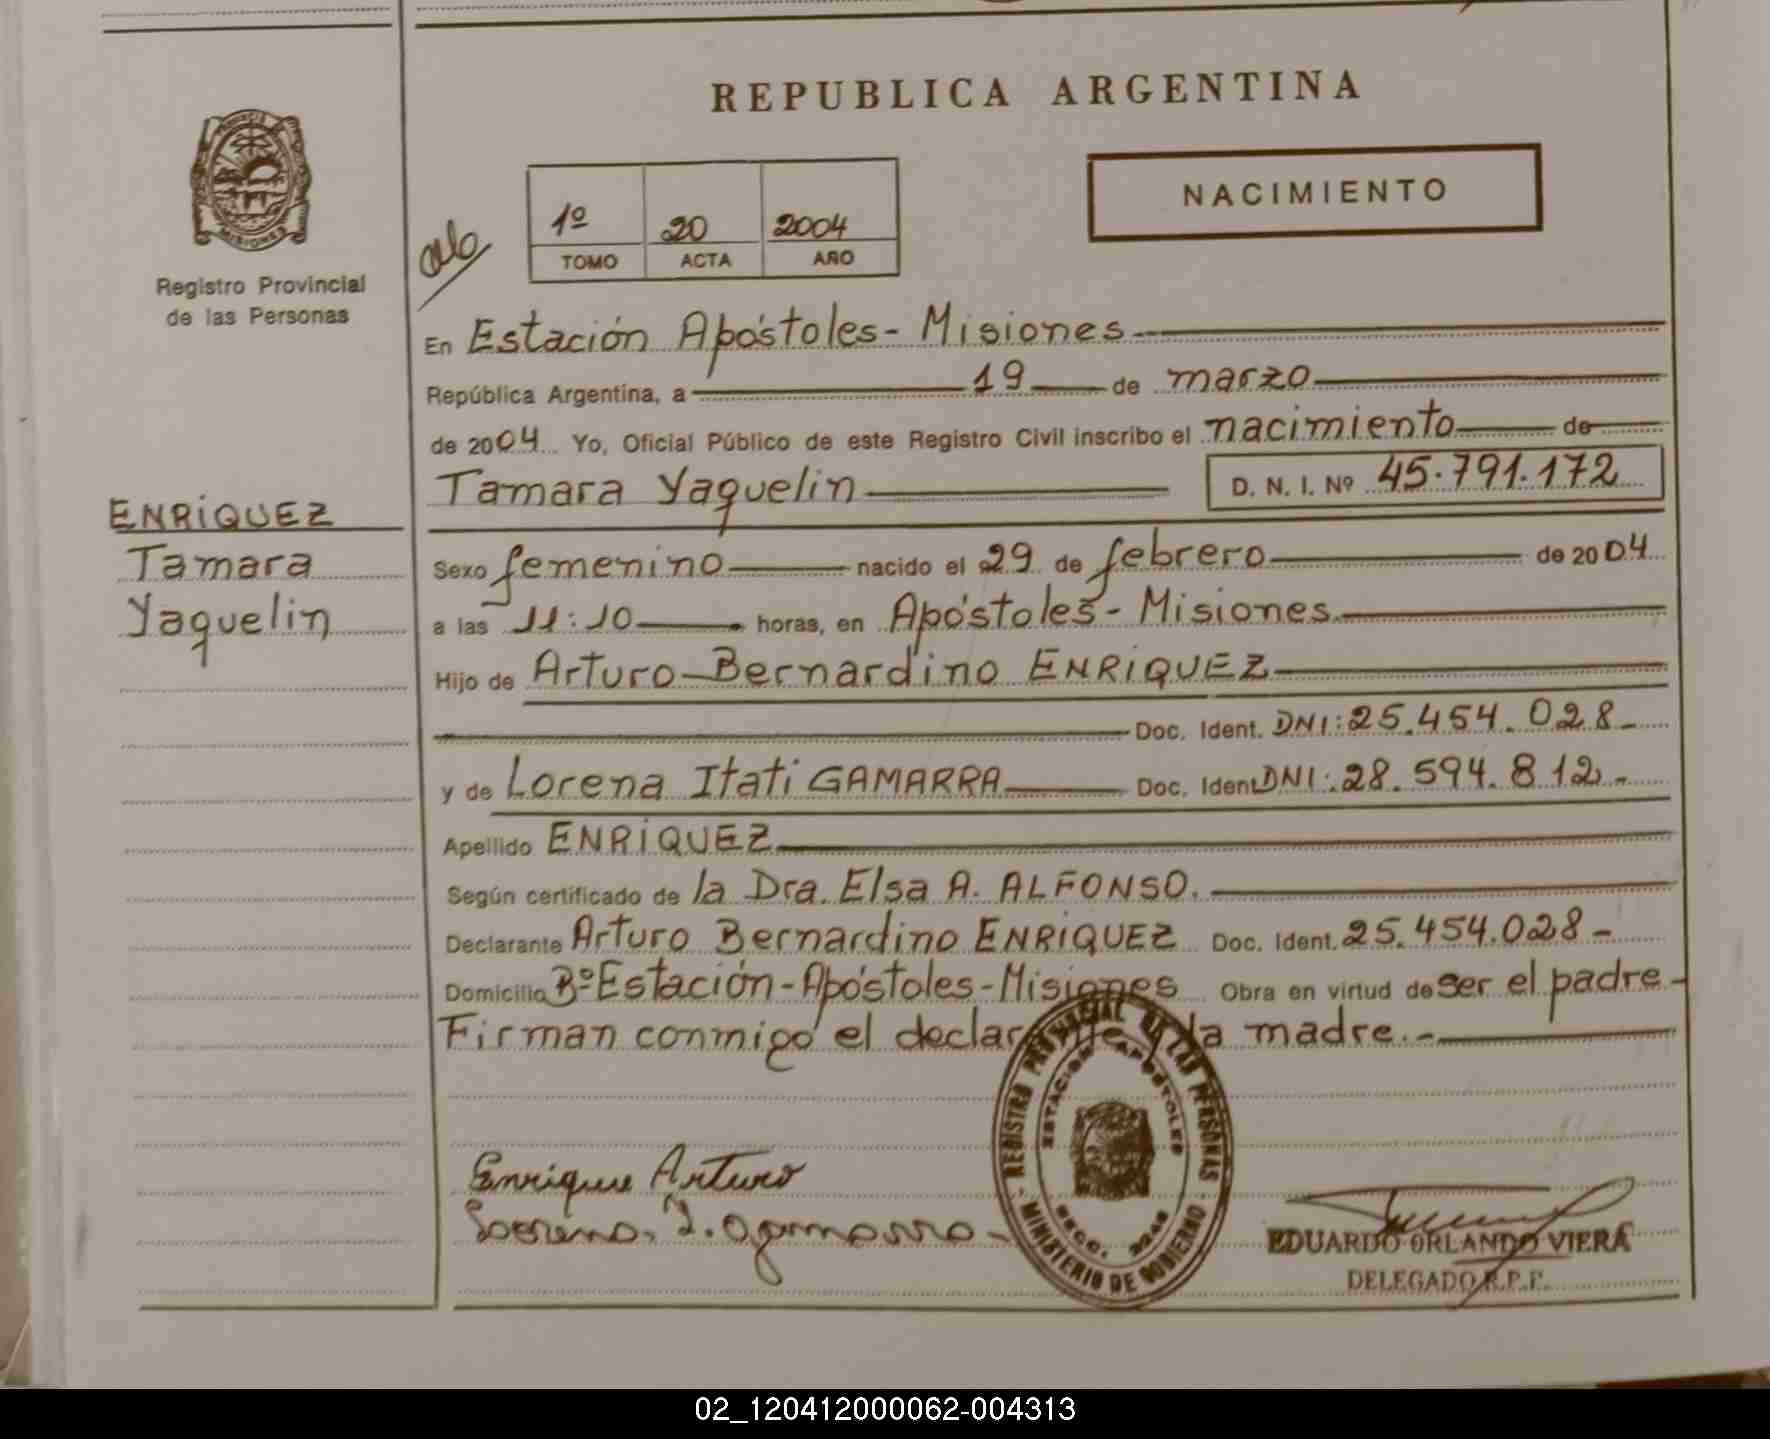 REPUBLICA ARGENTINA
NACIMIENTO
1º 20 2004
TOMO ACTA AÑO
MISIONES
Registro Provincial
de las Personas
En Estación Apóstoles - Misiones
República Argentina, a 19 de marzo
de 2004 Yo, Oficial Público de este Registro Civil inscribo el nacimiento de
Tamara Yaquelin D. N. I. Nº 45.791.172
ENRIQUEZ
Tamara
Yaquelin
Sexo femenino nacido el 29 de febrero de 2004
a las 11:10 horas, en Apóstoles - Misiones
Hijo de Arturo Bernardino ENRIQUEZ
Doc. Ident. DNI: 25.454.028-
y de Lorena Itati GAMARRA Doc. Ident DNI: 28.594.812.-
Apellido ENRIQUEZ
Según certificado de la Dra. Elsa A. ALFONSO.
Declarante Arturo Bernardino ENRIQUEZ Doc. Ident. 25.454.028-
Domicilio Bº Estación - Apóstoles - Misiones Obra en virtud de ser el padre-
Firman conmigo el declarante y la madre.-
Enrique Arturo
REGISTRO PROVINCIAL DE LAS PERSONAS
ESTACION APOSTOLES
MINISTERIO DE GOBIERNO
EDUARDO ORLANDO VIERA
DELEGADO R.P.P.
02_120412000062-004313